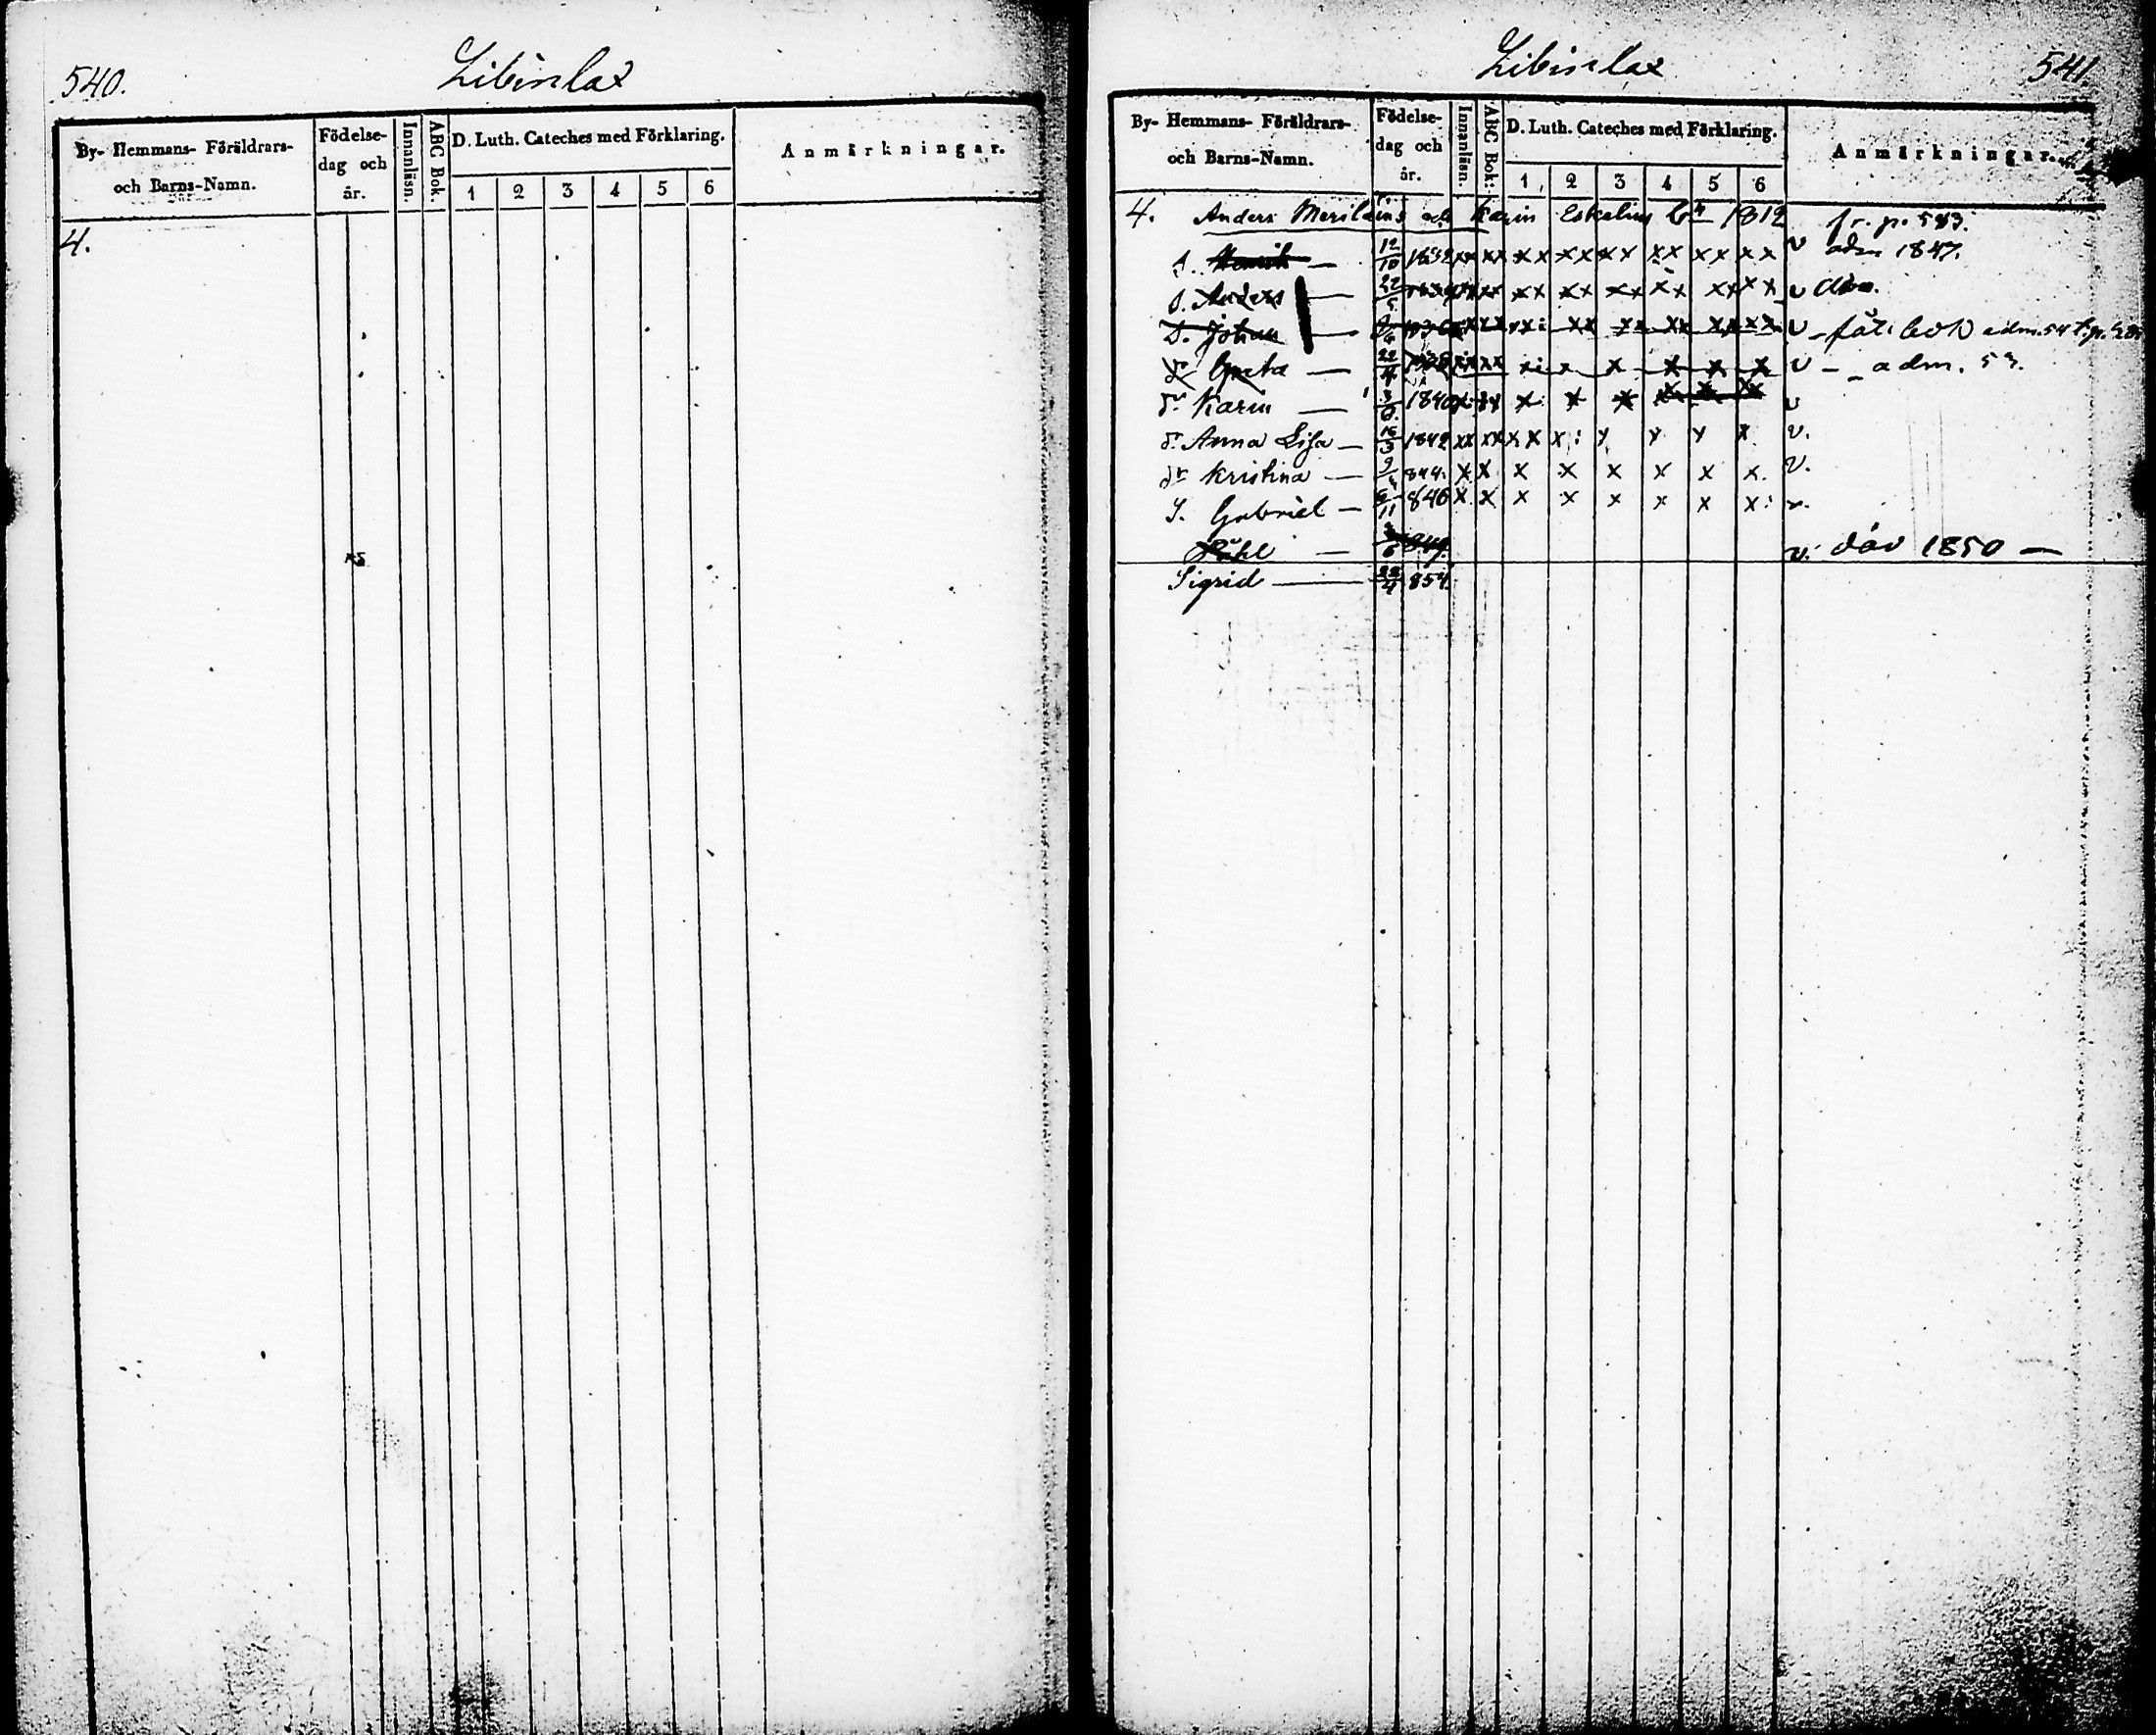 540.
Libinlax
By- Hemmans- Föräldrars-
och Barns-Namn.
Födelse-
dag och
år.
Innanläsn.
ABC Bok.
D. Luth. Cateches med Förklaring.
1 2 3 4 5 6
Anmärkningar.
4.
Libinlax
541
By- Hemmans- Föräldrars-
och Barns-Namn.
Födelse-
dag och
år.
Innanläsn.
ABC Bok:
D. Luth. Cateches med Förklaring.
1 2 3 4 5 6
Anmärkningar.
4. Anders Meriläins och Karin Eskelin 1812 fr. p. 583.
S. Henrik — 12/10 1832 xx xx xx xx xx xx xx xx v adm 1847.
S. Anders — 22/5 xx xx xx xx xx xx xx v
S. Johan — xx xx xx xx xx xx v bok adm. 54
dr Greta — 22/4 xx xx x x x x x v — adm. 53.
dr Karin — 1840 x x x x x x v
dr Anna Lisa — 16/3 1842 xx xx x x x x x x x v.
dr Kristina — 844. x x x x x x x x. v.
S. Gabriel — 6/11 846 x x x x x x x x v.
Påhl — 849. v. död 1850 —
Sigrid — 854.